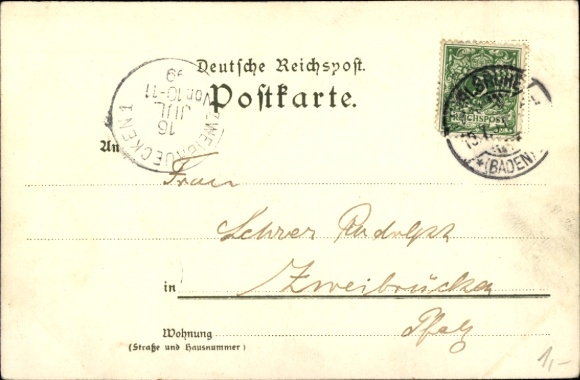 Deutsche Reichspost.
Postkarte.
REICHSPOST
(BADEN)
ZWEIBRUECKEN 1
16
JUL
Vor. 10-11
99
An
Frau
Lehrer Rudolph
in Zweibrücken
Pfalz
Wohnung
(Straße und Hausnummer)
1,-